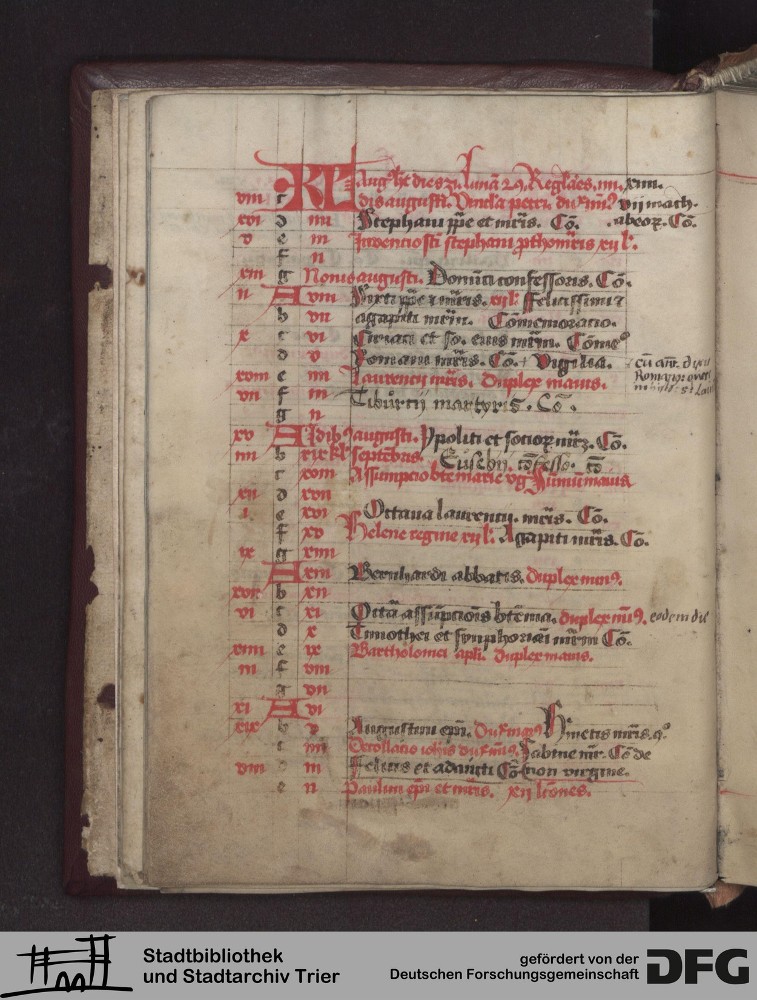 KL Aug' ht dies 31. Luna 29. Reg̃lães. iiii. xiiii.
viii c dis augusti. Vincla petri. du. mi9 vii mach-
xvi d iiii Stephani ppe et mr̃is. Cõ. abeoꝝ. Cõ.
v e iii Inventio sti stephani ꝓthomr̃is xii l'.
f ii
xiii g Nonis augusti. Dominici confessoris. Cõ.
ii A viii Sixti ppe z mr̃is. xii l'. Felicissimi z
b vii agapiti mr̃m. Cõmemoracio.
x c vi Ciriaci et so. eius mr̃m. Cõme
d v Romani mr̃is. Cõ. Vigilia.
xviii e iiii Laurencij mr̃is. Duplex maius.
vii f iii Tiburcij martyris. Cõ.
g ii
xv A Idib9 augusti. Ypoliti et socioꝝ mr̃ꝝ. Cõ.
iiii b xix kl' septẽbris. Eusebij. cõfesso. cõ
c xviii Assumpcio bte marie vg̃ Sum̃ maius
xii d xvii
i e xvi Octava laurencij. mr̃is. Cõ.
f xv Helene regine xii l'. Agapiti mr̃is. Cõ.
ix g xiiii
A xiii Bernhardi abbatis. Duplex mai9.
xvii b xii
vi c xi Octã assũpciõis bte ma. duplex mi9. eodem die
d x Timothei et simphoriani mr̃m Cõ.
xiiii e ix Bartholomei apli. Duplex maius.
iii f viii
g vii
xi A vi
xix b v Augustini epĩ. Hermetis mr̃is.
c iiii Decollatio iohis du. mi9. Sabine mr̃. Cõ de
viii d iii Felicis et adaucti Cõ non virgine.
e ii Paulini epĩ et mr̃is. xii lc̃ones.
Stadtbibliothek
und Stadtarchiv Trier
gefördert von der
Deutschen Forschungsgemeinschaft
DFG